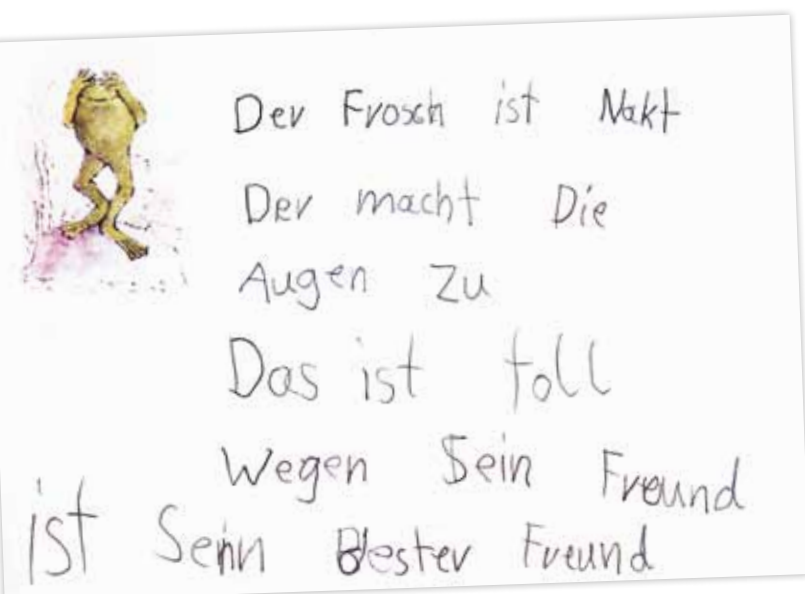 Der Frosch ist Nakt
Der macht Die
Augen zu
Das ist toll
Wegen Sein Freund
ist Sein Bester Freund